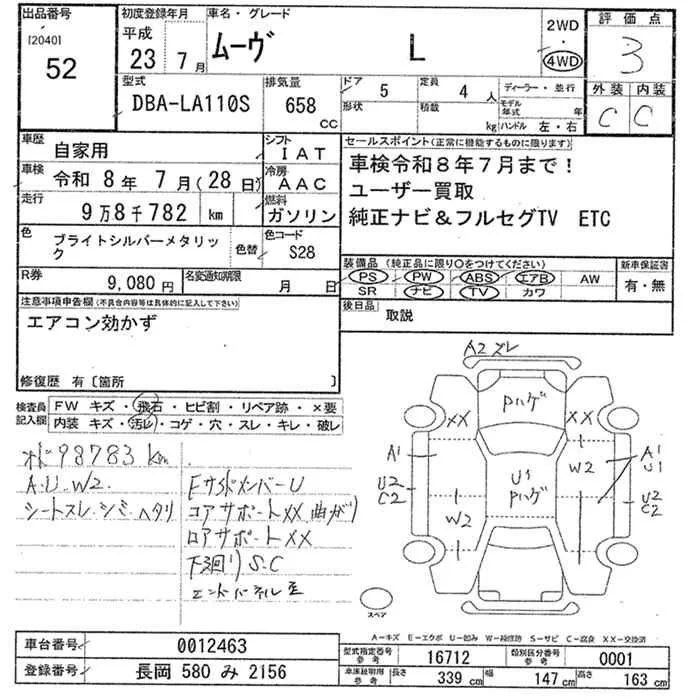 出品番号
[2040]
52
初度登録年月
平成
23 7月
車名・グレード
ムーヴ L
2WD
・
4WD
評価点
3
外装 内装
C C
型式
DBA-LA110S
排気量
658 CC
ドア 5
形状
定員 4 人
積載 kg
ディーラー・並行
モデル年式 年
ハンドル 左・右
車歴
自家用
シフト
IAT
車検
令和 8年 7月(28日)
冷房
AAC
走行
9万8千782 km
燃料
ガソリン
色
ブライトシルバーメタリック
色替
色コード
S28
R券
9,080円
名変通知期限
月 日
セールスポイント(正常に機能するものに限ります)
車検令和8年7月まで!
ユーザー買取
純正ナビ&フルセグTV ETC
装備品(純正品に限り○をつけてください)
PS PW ABS エアB AW
SR ナビ TV カワ
新車保証書
有・無
後日品
取説
注意事項申告欄(不具合内容等は具体的に記入して下さい)
エアコン効かず
修復歴 有〔箇所 〕
検査員記入欄
FW キズ・飛石・ヒビ割・リペア跡・×要
内装 キズ・汚レ・コゲ・穴・スレ・キレ・破レ
98783 km
A.U.W2
シートスレ.シミ.ヘタリ
FサイドメンバーU
コアサポートXX 曲がり
ロアサポートXX
下廻りS.C
エンドパネル歪
A2 ズレ
Pハゲ
XX XX
A1
U2
C2
W2
U1
Pハゲ
W2
A1
U1
U2
C2
スペア
A-キズ E-エクボ U-凹み W-補修跡 S-サビ C-腐食 XX-交換済
車台番号 0012463
登録番号 長岡 580 み 2156
型式指定番号参考 16712
類別区分番号参考 0001
車庫証明用参考 長さ 339 cm 幅 147 cm 高さ 163 cm